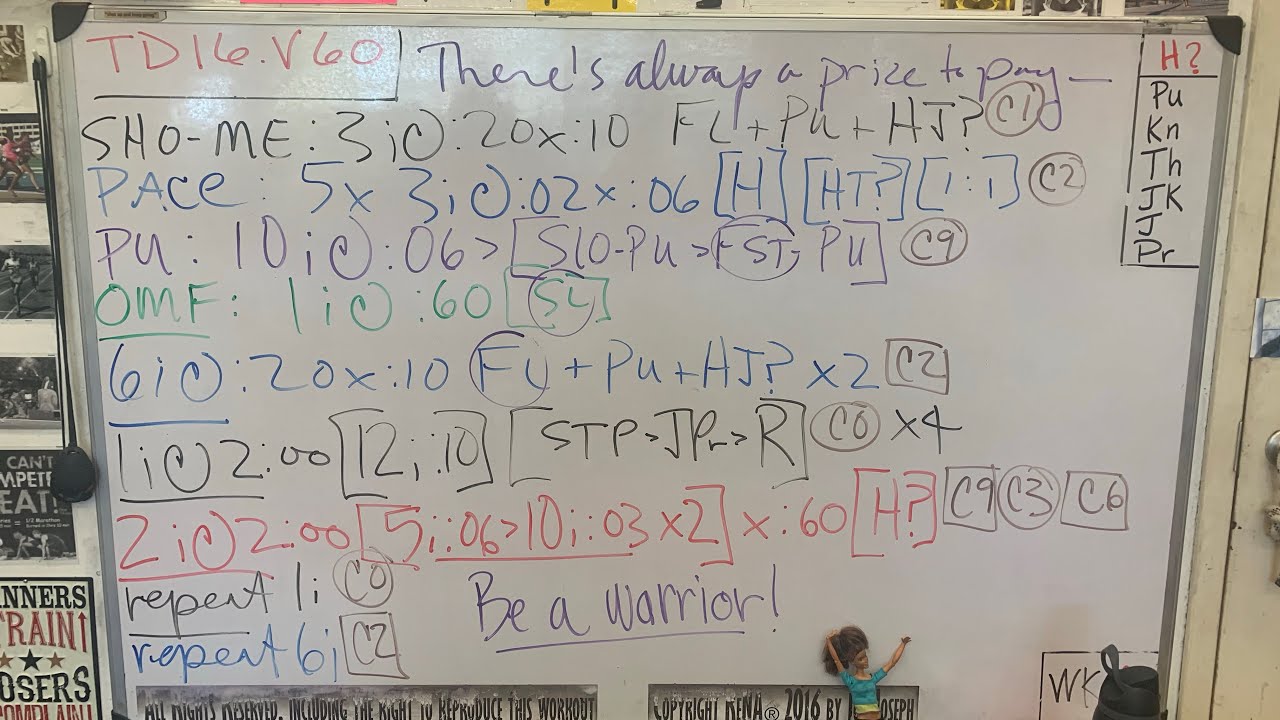 TD16.V60
There's always a prize to pay—
H?
Pu
Kn
Th
JK
J
Pr
SHO-ME: 3i@:20x:10 FL+PU+HJ? C1
PACE: 5x 3i@:02x:06 [H] [HT?] [1:1] C2
PU: 10i@:06> [SLO-PU>FST-PU] C9
OMF: 1i@:60 [SL]
6i@:20x:10 FL+PU+HJ? x2 C2
1i@2:00 [12i:10] [STP>JPr>R] C0 x4
2i@2:00 [5i:06>10i:03x2] x:60 [H?] C9 C3 C6
repeat 1i C0
Be a warrior!
repeat 6i C2
WK
CAN'T
MPETE
EAT!
NNERS
TRAIN
OSERS
COMPLAIN
ALL RIGHTS RESERVED, INCLUDING THE RIGHT TO REPRODUCE THIS WORKOUT
COPYRIGHT KENA® 2016 BY JOSEPH